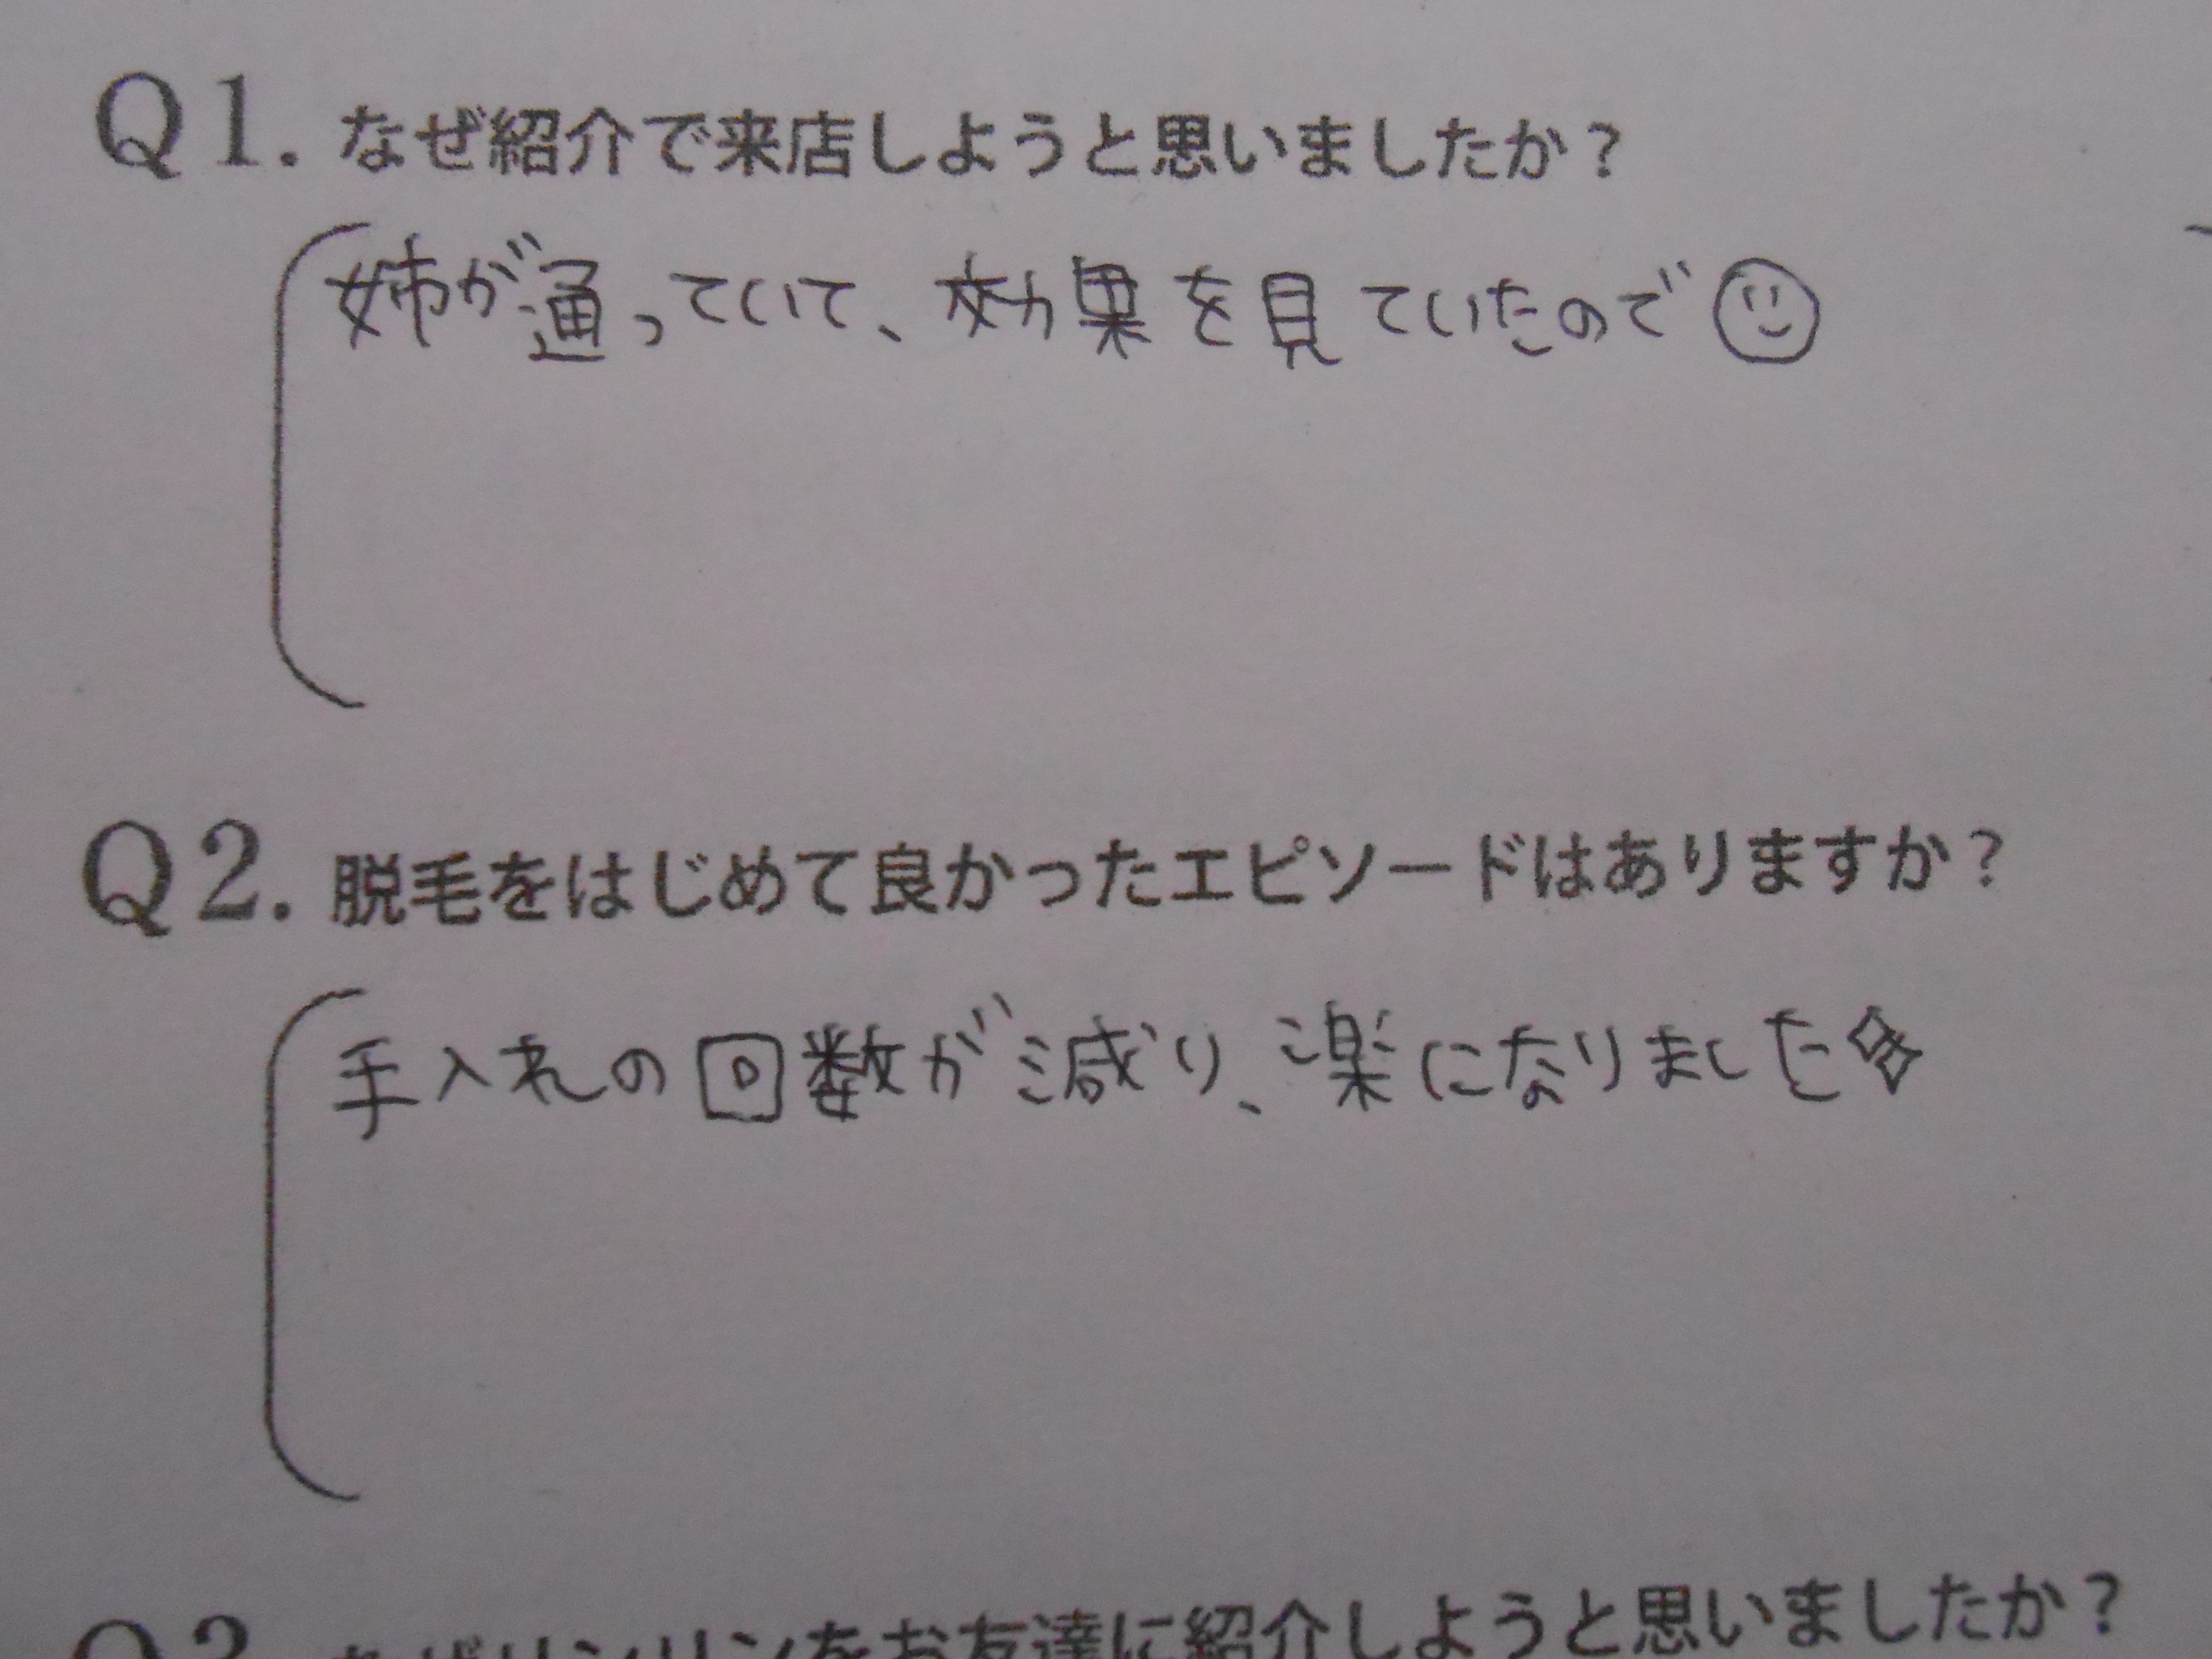 Q1. なぜ紹介で来店しようと思いましたか？
姉が通っていて、効果を見ていたので
Q2. 脱毛をはじめて良かったエピソードはありますか？
手入れの回数が減り、楽になりました
Q3. なぜリンリンをお友達に紹介しようと思いましたか？